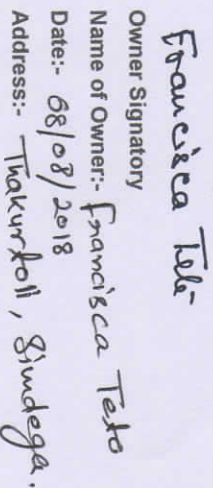 Francisca Tete
Owner Signatory
Name of Owner:- Francisca Teto
Date:- 08/08/2018
Address:- Thakurtoli, Simdega.